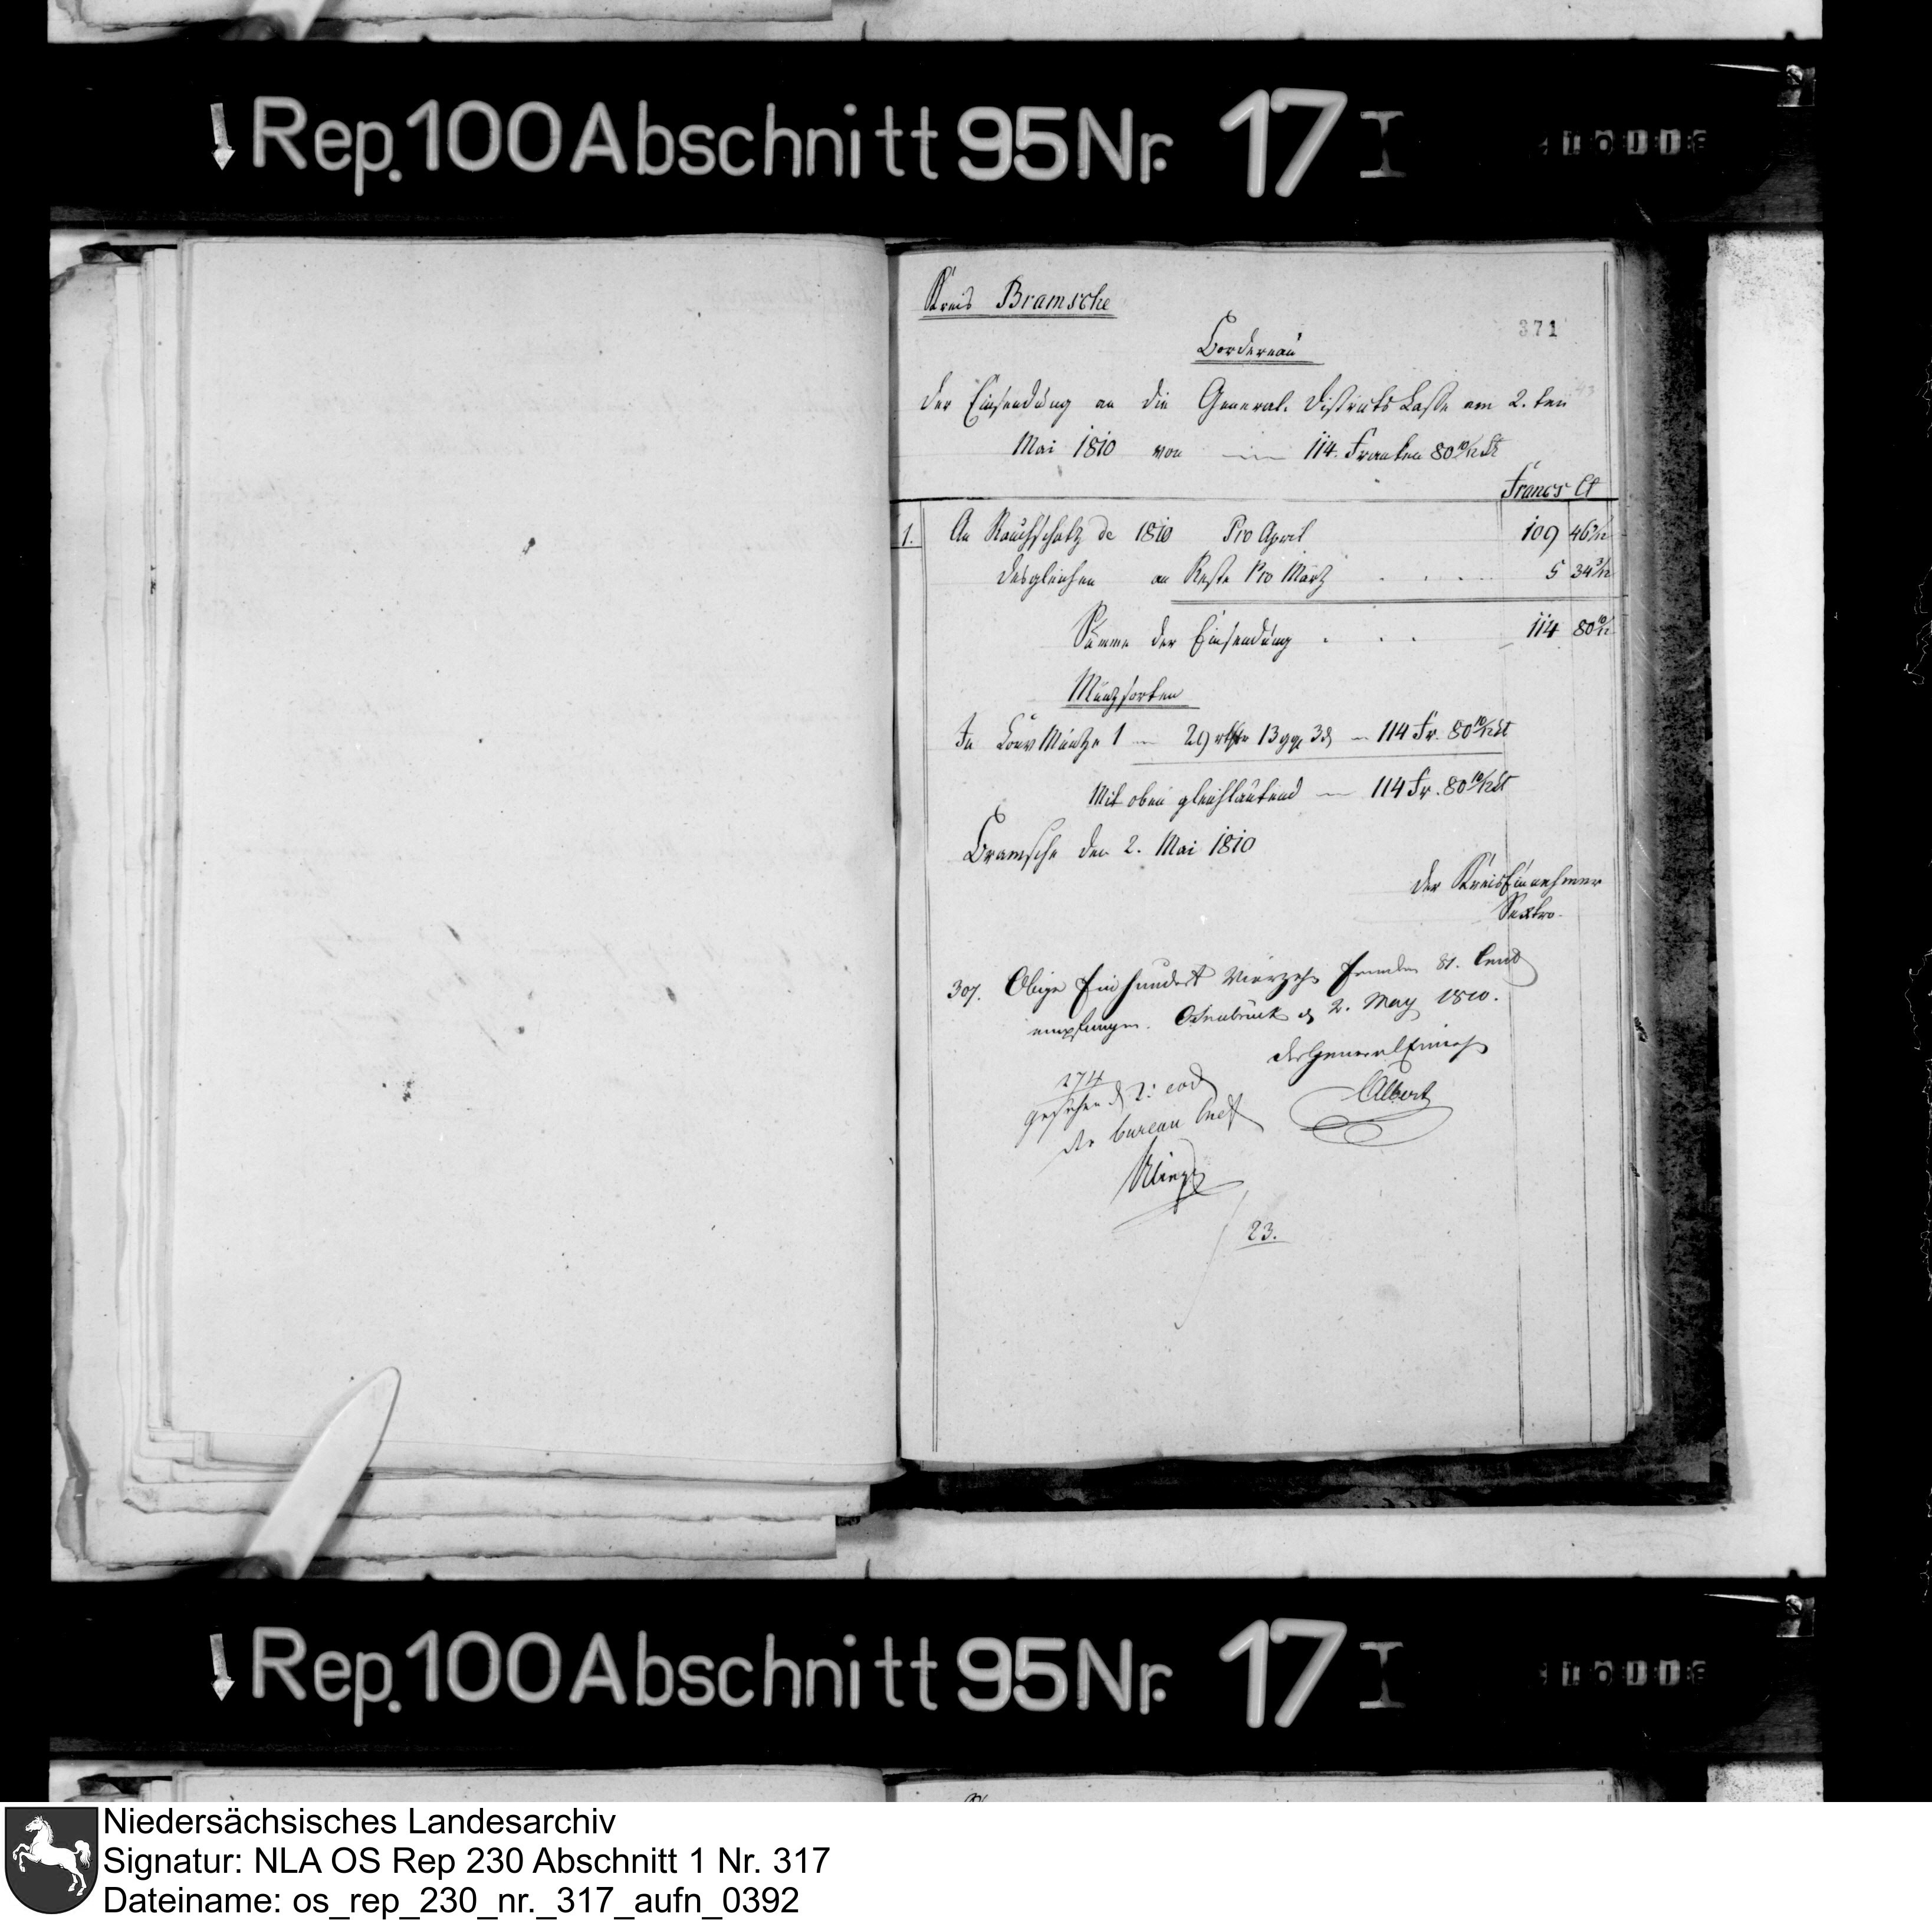 Rep. 100 Abschnitt 95 Nr. 17 I
Kreis Bramsche
371
Bordereau
der Einsendung an die General. Districts Casse am 2. ten
Mai 1810 von 114. Franken 80 10/12 Ct
Francs Ct
1. An Rauchschatz de 1810 Pro April 109 46 7/12
desgleichen an Reste Pro Märtz . . . . 5 34 3/12
Summe der Einsendung . . . 114 80 10/12
Müntzsorten
In Conv Müntze 1 — 29 rthlr 13 ggr 3 d — 114 Fr. 80 10/12 Ct
Mit oben gleichlautend — 114 Fr. 80 10/12 Ct
Bramsche den 2. Mai 1810
Der Kreis Einnehmer
Sextro.
307. Obige Ein hundert Vierzehn Franken 81. Cent
empfangen. Osnabrück d 2. May 1810.
Der General Einneh
Albert
274
gesehen d 2. eod
der bureau Chef
23.
Rep. 100 Abschnitt 95 Nr. 17 I
Niedersächsisches Landesarchiv
Signatur: NLA OS Rep 230 Abschnitt 1 Nr. 317
Dateiname: os_rep_230_nr._317_aufn_0392